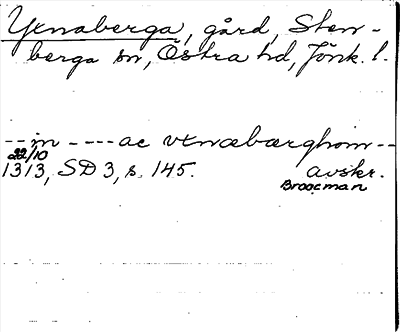 Ytnaberga, gård, Sten-
berga sn, Östra hd, Jönk. l.
-- in ---- ac vtnæbærghom --
22/10
1313, SD 3, s. 145. avskr.
Broocman